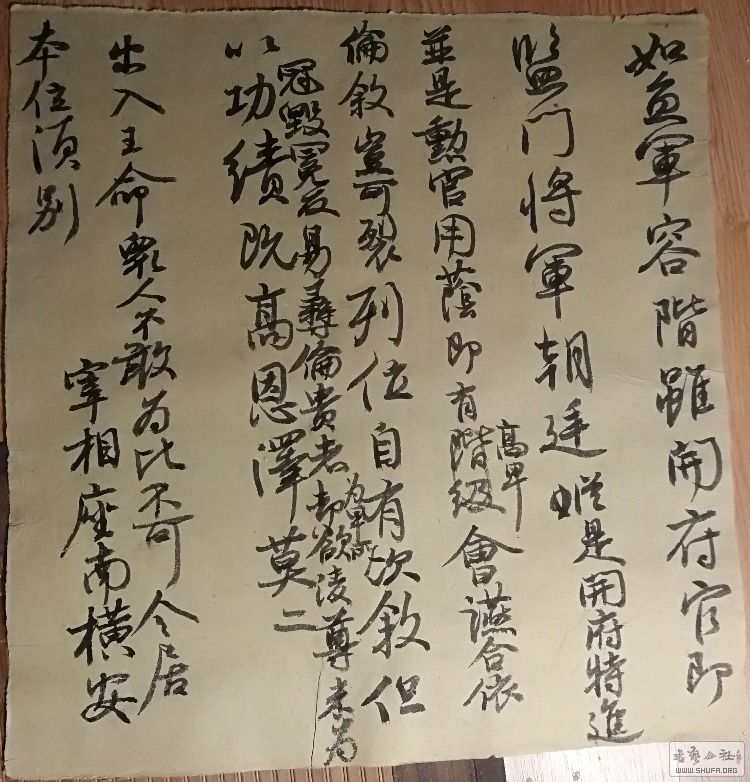 如魚軍容階雖開府官即
監門将軍朝廷縱是開府特進
並是勳官用蔭即有階級會讌合依
高卑
倫敘豈可裂列位自有次敘但
冠毀冕反易彝倫貴者却欲陵尊未為
為卑所
以功績既高恩澤莫二
出入王命眾人不敢為比不可令居
宰相座南横安
本位須别
書法公社
WWW.SHUFA.ORG